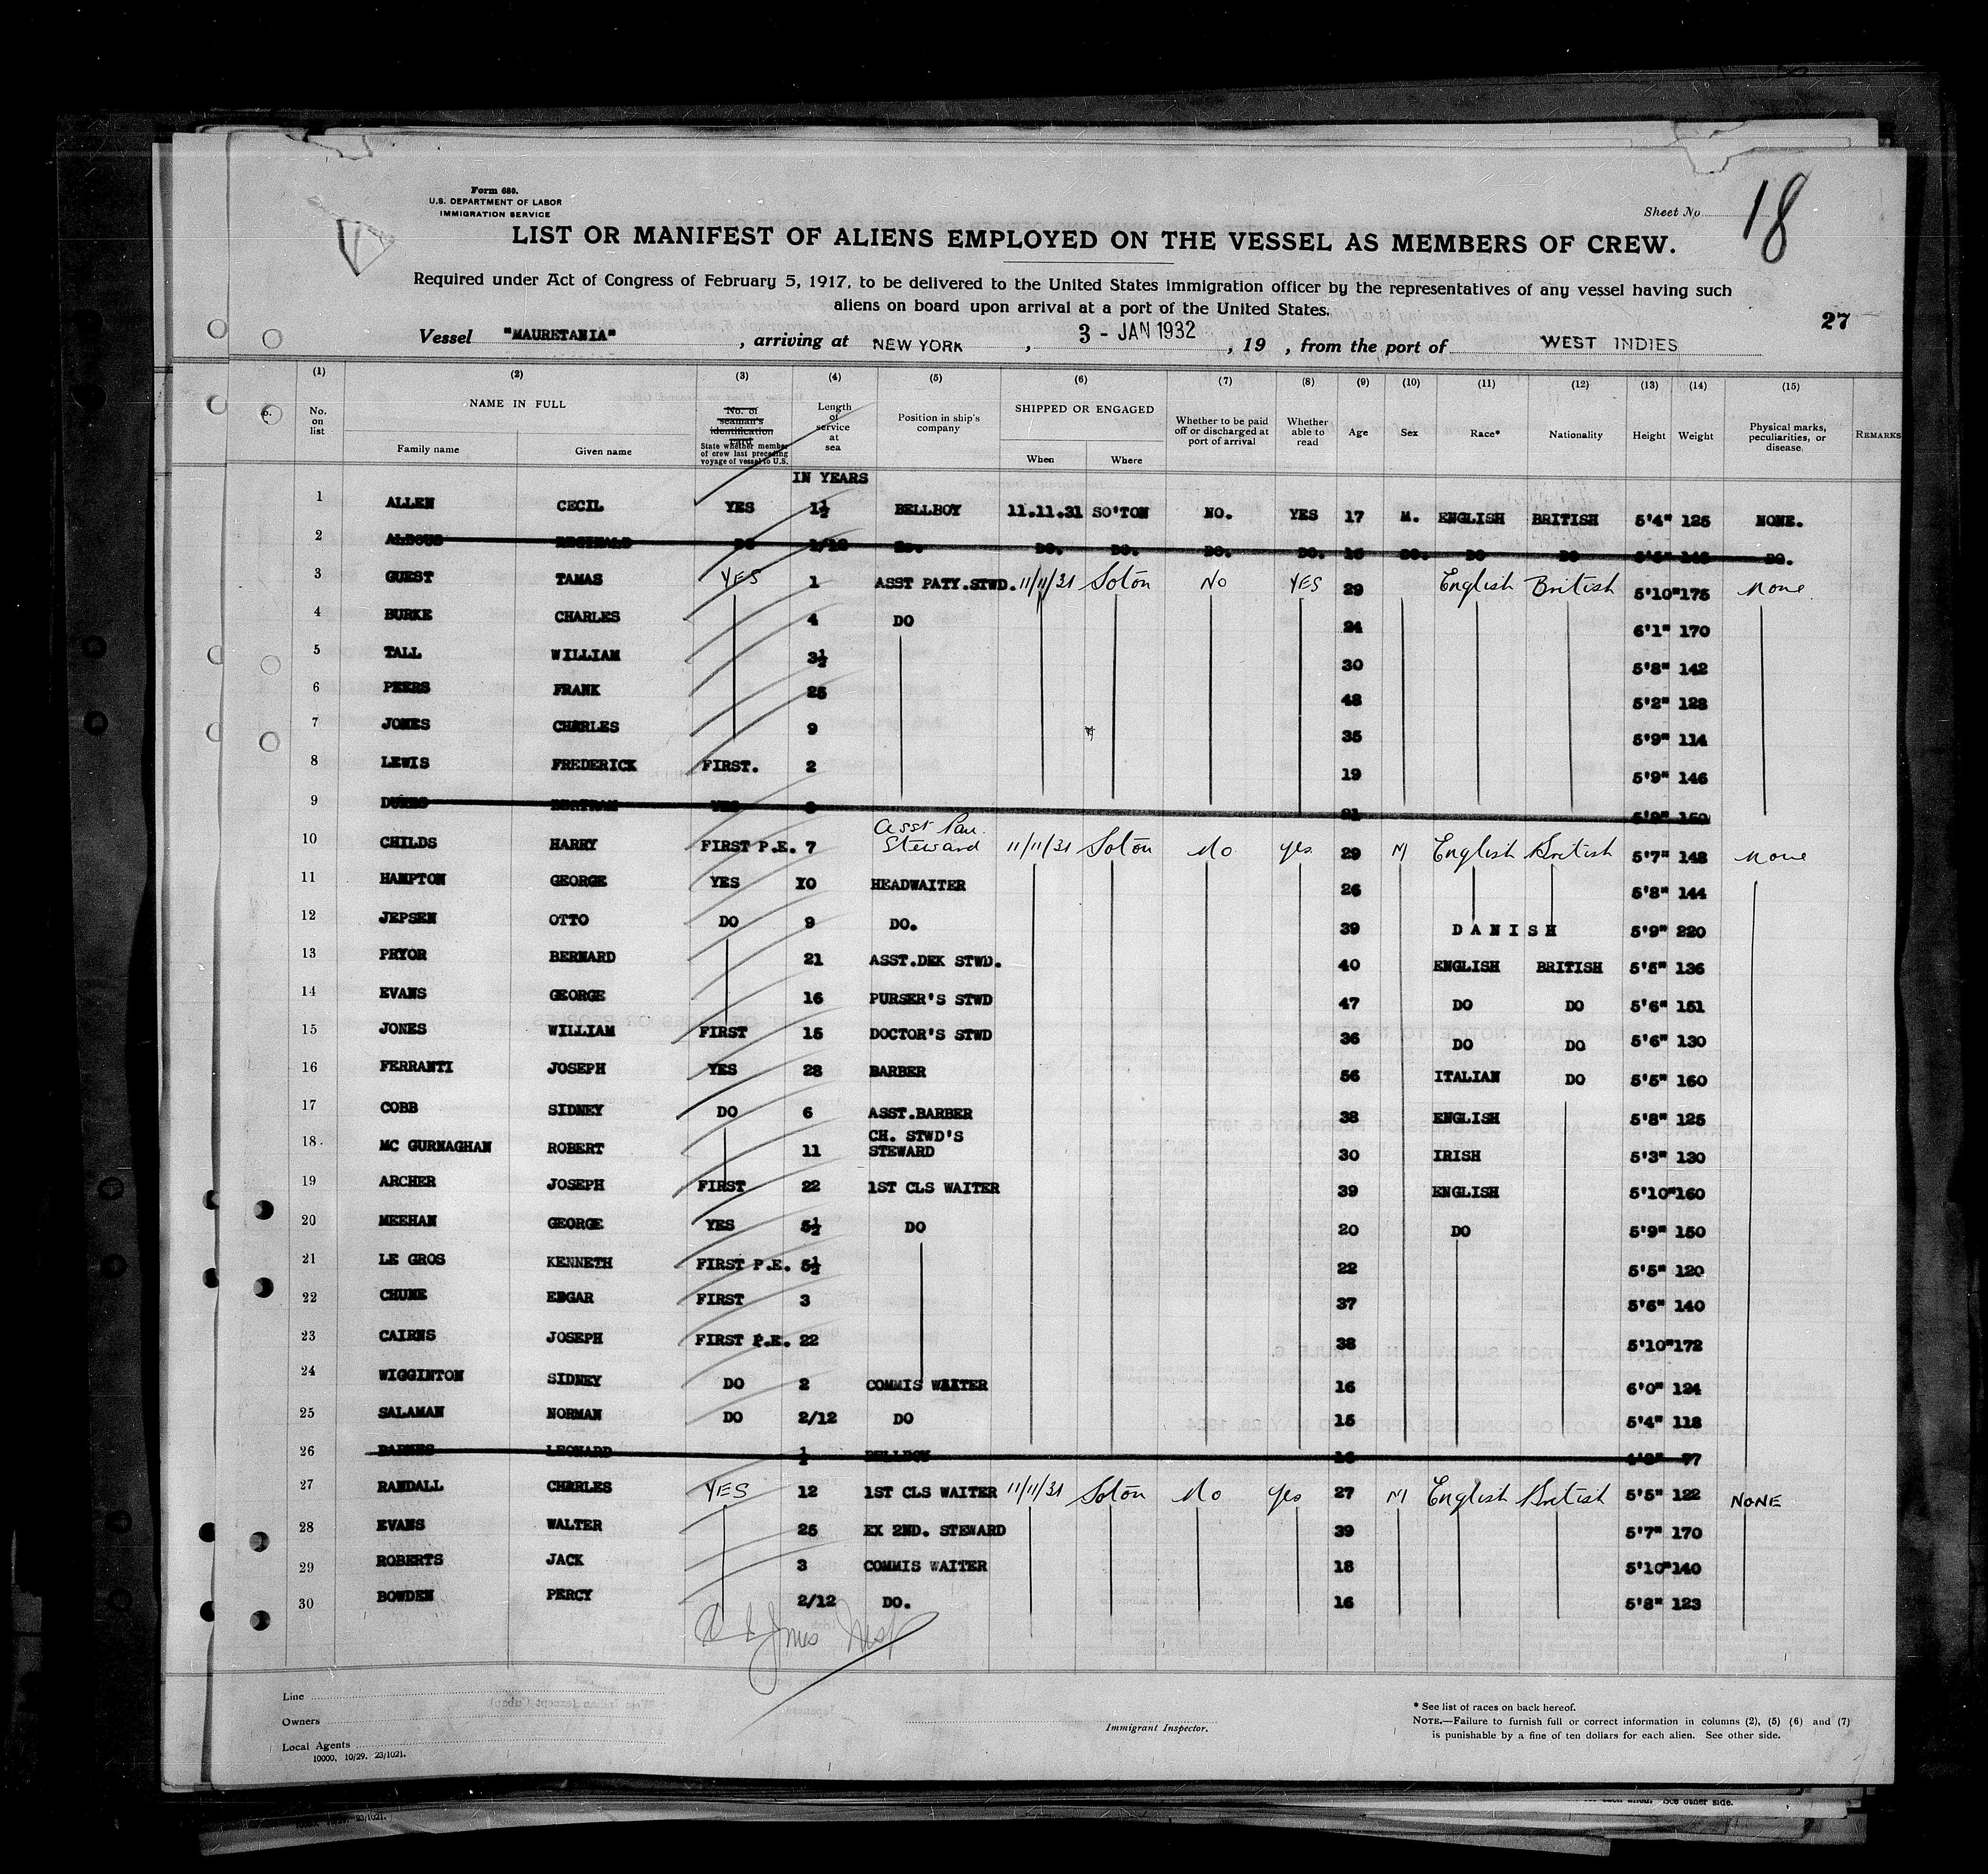 Form 680.
U.S. DEPARTMENT OF LABOR
IMMIGRATION SERVICE
Sheet No. 18
LIST OR MANIFEST OF ALIENS EMPLOYED ON THE VESSEL AS MEMBERS OF CREW.
Required under Act of Congress of February 5, 1917, to be delivered to the United States immigration officer by the representatives of any vessel having such
aliens on board upon arrival at a port of the United States.
27
Vessel "MAURETANIA", arriving at NEW YORK, 3 - JAN 1932, 19 , from the port of WEST INDIES
(1) (2) (3) (4) (5) (6) (7) (8) (9) (10) (11) (12) (13) (14) (15)
No. on list
NAME IN FULL
Family name Given name
No. of seaman's identification card
State whether member of crew last preceding voyage of vessel to U.S.
Length of service at sea
Position in ship's company
SHIPPED OR ENGAGED
When Where
Whether to be paid off or discharged at port of arrival
Whether able to read
Age Sex Race* Nationality Height Weight
Physical marks, peculiarities, or disease.
REMARKS
IN YEARS
1 ALLEN CECIL YES 1½ BELLBOY 11.11.31 SO'TON NO. YES 17 M. ENGLISH BRITISH 5'4" 125 NONE.
2 ALDOUS REGINALD DO 1/12 DO. DO. DO. DO. DO. DO. DO DO DO.
3 GUEST TAMAS YES 1 ASST PATY.STWD. 11/11/31 Soton No YES 29 English British 5'10" 175 None.
4 BURKE CHARLES 4 DO 24 6'1" 170
5 TALL WILLIAM 3½ 30 5'8" 142
6 PEERS FRANK 25 48 5'2" 128
7 JONES CHARLES 9 35 5'9" 114
8 LEWIS FREDERICK FIRST. 2 19 5'9" 146
9 DUKES BERTRAM YES 21
10 CHILDS HARRY FIRST P.E. 7 Asst Pan. Steward 11/11/31 Soton No yes. 29 M English British 5'7" 148 None
11 HAMPTON GEORGE YES 10 HEADWAITER 26 5'8" 144
12 JEPSEN OTTO DO 9 DO. 39 DANISH 5'9" 220
13 PRYOR BERNARD 21 ASST.DEK STWD. 40 ENGLISH BRITISH 5'5" 136
14 EVANS GEORGE 16 PURSER'S STWD 47 DO DO 5'6" 151
15 JONES WILLIAM FIRST 15 DOCTOR'S STWD 36 DO DO 5'6" 130
16 FERRANTI JOSEPH YES 28 BARBER 56 ITALIAN DO 5'5" 160
17 COBB SIDNEY DO 6 ASST.BARBER 38 ENGLISH 5'8" 125
18. MC GURNAGHAN ROBERT 11 CH. STWD'S STEWARD 30 IRISH 5'3" 130
19 ARCHER JOSEPH FIRST 22 1ST CLS WAITER 39 ENGLISH 5'10" 160
20 MEEHAN GEORGE YES 5½ DO 20 DO 5'9" 150
21 LE GROS KENNETH FIRST P.E. 5½ 22 5'5" 120
22 CHUNE EDGAR FIRST 3 37 5'6" 140
23 CAIRNS JOSEPH FIRST P.E. 22 38 5'10" 172
24 WIGGINTON SIDNEY DO 2 COMMIS WAITER 16 6'0" 124
25 SALAMAN NORMAN DO 2/12 DO 15 5'4" 118
26 BARNES LEONARD ½ BELLBOY 16 77
27 RANDALL CHARLES YES 12 1ST CLS WAITER 11/11/31 Soton No yes 27 M English British 5'5" 122 NONE
28 EVANS WALTER 25 EX 2ND. STEWARD 39 5'7" 170
29 ROBERTS JACK 3 COMMIS WAITER 18 5'10" 140
30 BOWDEN PERCY 2/12 DO. 16 5'8" 123
Line
Owners
Local Agents
10000, 10/29. 23/1021.
Immigrant Inspector.
* See list of races on back hereof.
NOTE.—Failure to furnish full or correct information in columns (2), (5) (6) and (7)
is punishable by a fine of ten dollars for each alien. See other side.
23/1021.
See other side.